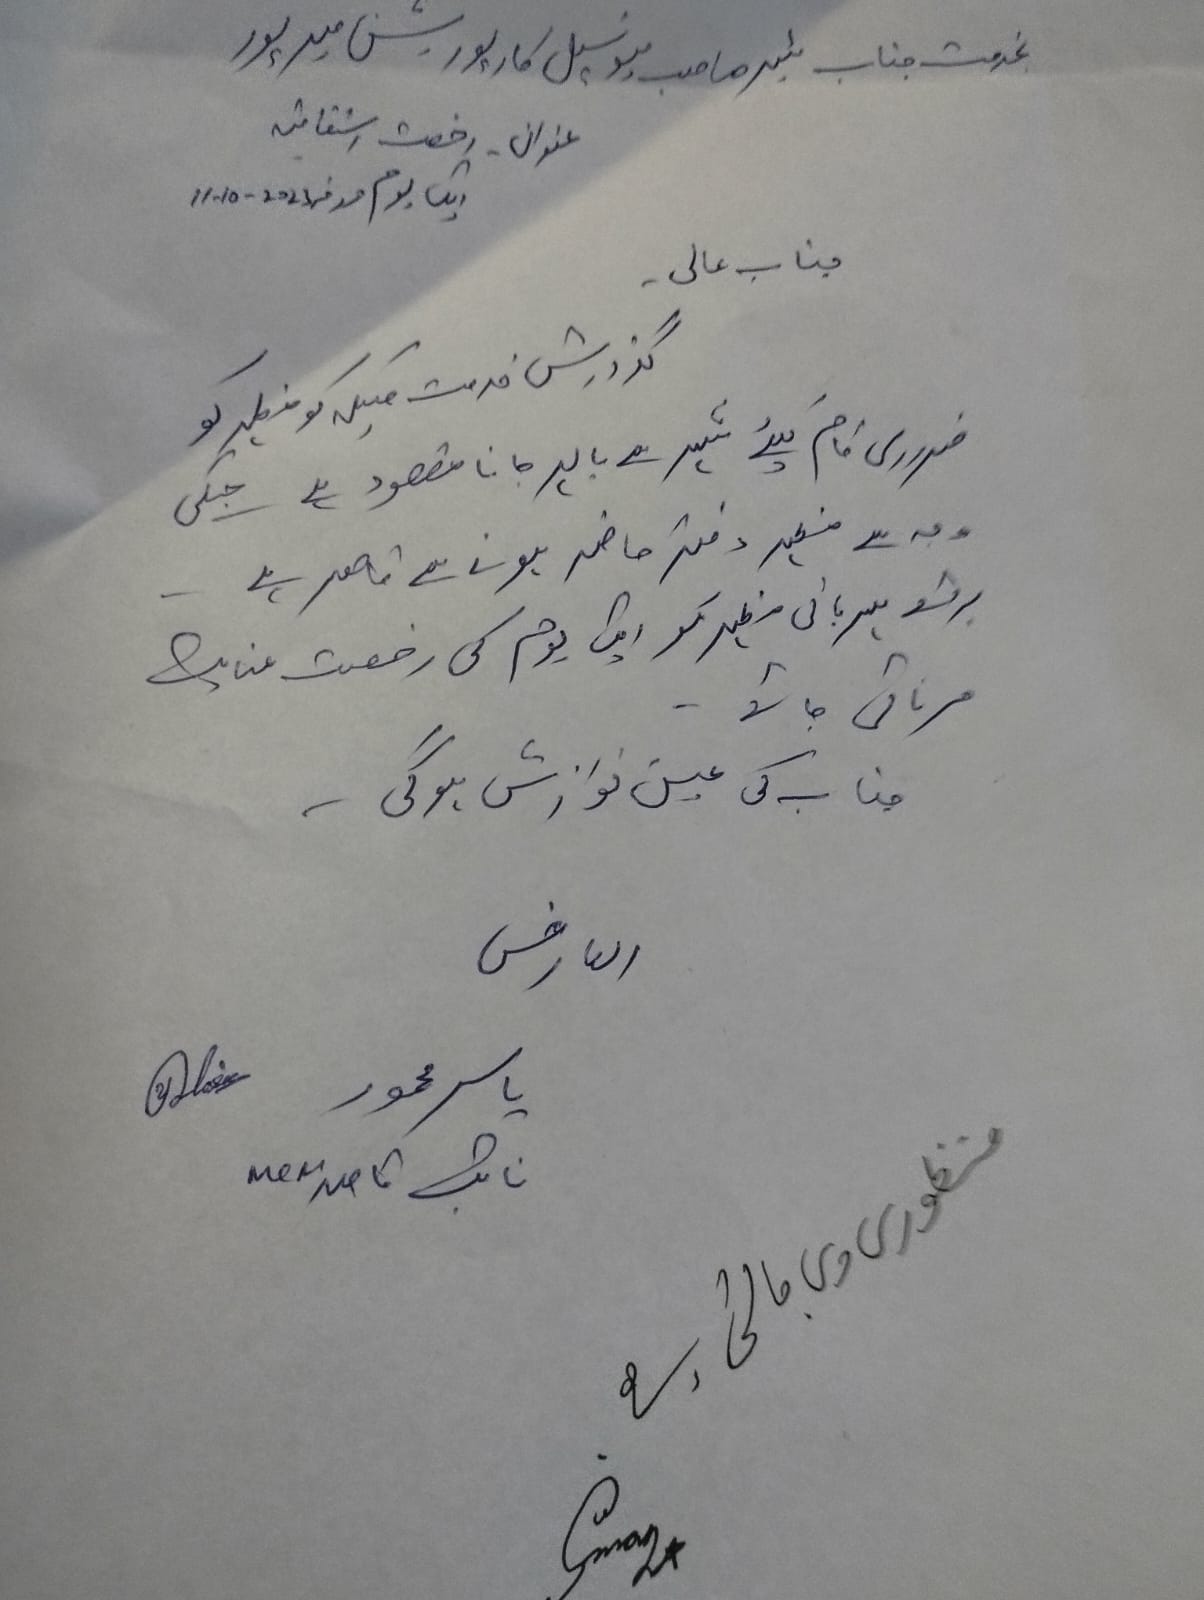 بخدمت جناب میئر صاحب میونسپل کارپوریشن میرپور
عنوان۔ رخصت اتفاقیہ
ایک یوم مورخہ 11-10-202
جناب عالی۔
گذارش خدمت ہیکہ کو مظہر کو
ضروری کام کیلئے شہر سے باہر جانا مقصود ہے جسکی
وجہ سے مظہر دفتر حاضر ہونے سے قاصر ہے ۔
برائے مہربانی مظہر کو ایک یوم کی رخصت عنایت
فرمائی جائے ۔
جناب کی عین نوازش ہوگی ۔
العارض
یاسر محمود
نائب قاصد MCM
منظوری دی جاتی ہے